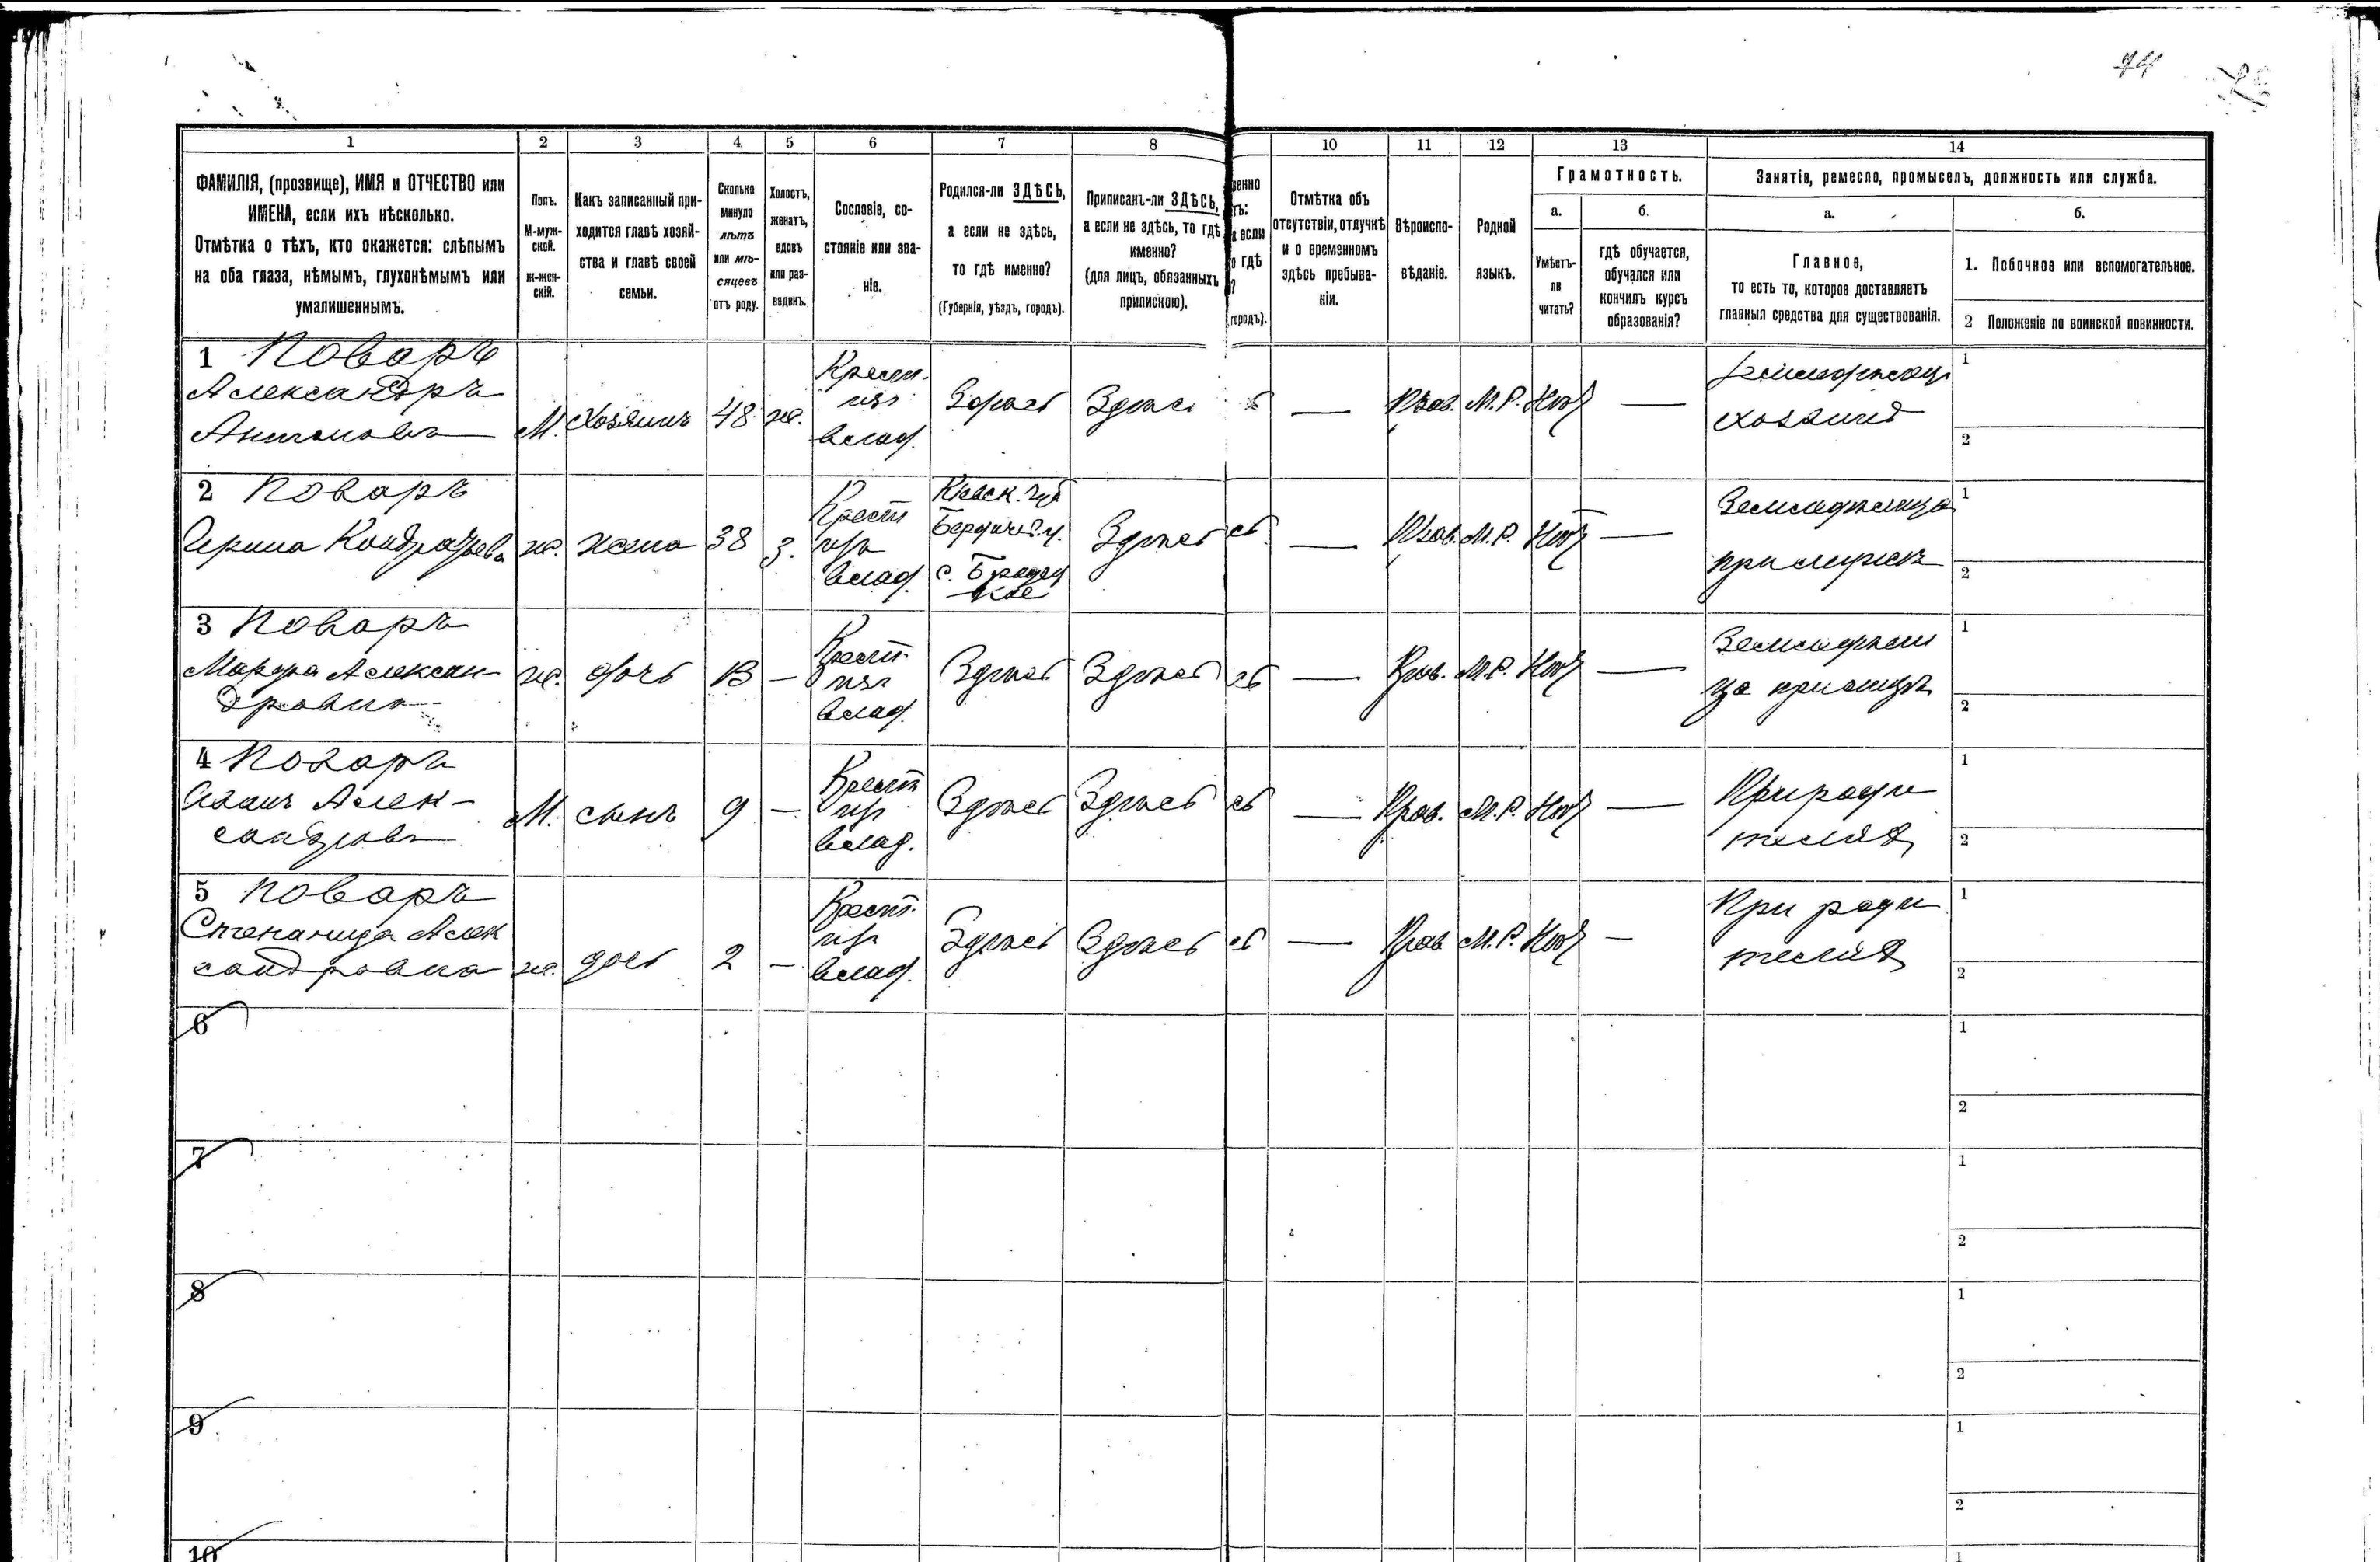 74
1
2
3
4
5
6
7
8
10
11
12
13
14
ФАМИЛІЯ, (прозвище), ИМЯ и ОТЧЕСТВО или
ИМЕНА, если ихъ нѣсколько.
Отмѣтка о тѣхъ, кто окажется: слѣпымъ
на оба глаза, нѣмымъ, глухонѣмымъ или
умалишеннымъ.
Полъ.
М-муж-
ской.
ж-жен-
скій.
Какъ записанный при-
ходится главѣ хозяй-
ства и главѣ своей
семьи.
Сколько
минуло
лѣтъ
или мѣ-
сяцевъ
отъ роду.
Холостъ,
женатъ,
вдовъ
или раз-
веденъ.
Сословіе, со-
стояніе или зва-
ніе.
Родился-ли ЗДѢСЬ,
а если не здѣсь,
то гдѣ именно?
(Губернія, уѣздъ, городъ).
Приписанъ-ли ЗДѢСЬ,
а если не здѣсь, то гдѣ
именно?
(для лицъ, обязанныхъ
припискою).
венно
тъ:
а если
о гдѣ
?
городъ).
Отмѣтка объ
отсутствіи, отлучкѣ
и о временномъ
здѣсь пребыва-
ніи.
Вѣроиспо-
вѣданіе.
Родной
языкъ.
Грамотность.
а.
Умѣетъ-
ли
читать?
б.
гдѣ обучается,
обучался или
кончилъ курсъ
образованія?
Занятіе, ремесло, промыселъ, должность или служба.
а.
Главное,
то есть то, которое доставляетъ
главныя средства для существованія.
б.
1. Побочное или вспомогательное.
2 Положеніе по воинской повинности.
1 Поваръ
Александръ
Антоновъ
М.
Хозяинъ
48
ж.
Крест.
изъ
влад.
Здѣсь
Здѣсь
—
Прав.
М.Р.
Нѣтъ
—
хозяинъ
1
2
2 Поваръ
Ирина Кондратьева
ж.
жена
38
з.
Крест
изъ
влад.
Кіевск. губ
Бердич. у.
Здѣсь
сь
—
Прав.
М.Р.
Нѣтъ
—
Земледѣлица
при мужѣ
1
2
3 Поваръ
Марфа Алексан-
дровна
ж.
дочь
13
—
Крест.
изъ
влад.
Здѣсь
Здѣсь
сь
—
Прав.
М.Р.
Нѣтъ
—
Земледѣли
ца при отцѣ
1
2
4 Поваръ
Иванъ Алек-
сандровъ
М.
сынъ
9
—
Крест
изъ
влад.
Здѣсь
Здѣсь
сь
—
Прав.
М.Р.
Нѣтъ
—
При роди
теляхъ
1
2
5 Поваръ
Степанида Алек
сандровна
ж.
дочь
2
—
Крест.
изъ
влад.
Здѣсь
Здѣсь
сь
—
Прав
М.Р.
Нѣтъ
—
При роди
теляхъ
1
2
6
1
2
7
1
2
8
1
2
9
1
2
10
1